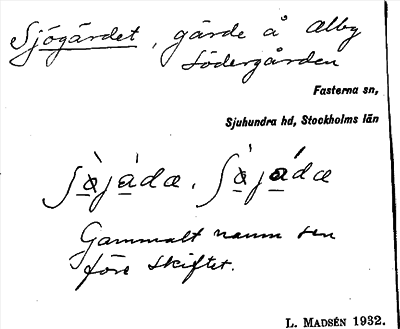 Sjögärdet, gärde å Alby
Södergården
Fasterna sn,
Sjuhundra hd, Stockholms län
Gammalt namn sen
före skiftet.
L. MADSÉN 1932.